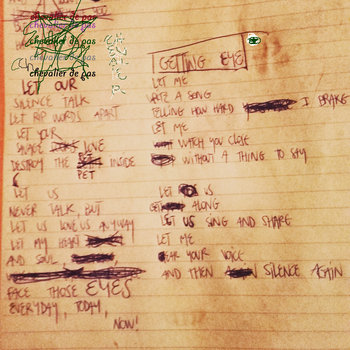 chevalier de pas
chevalier de pas
chevalier de pas
chevalier de pas
LET OUR
SILENCE TALK
LET RIP WORDS APART
LET YOUR
SAVAGE LOVE
DESTROY THE INSIDE
PET
LET US
NEVER TALK, BUT
LET US LOVE US ANYWAY
LET MY HEART
AND SOUL,
FACE THOSE EYES
EVERYDAY, TODAY,
NOW!
GETTING EYE
LET ME
WRITE A SONG
TELLING HOW HARD I BRAKE
LET ME
WATCH YOU CLOSE
WITHOUT A THING TO SAY
LET US
GET ALONG
LET US SING AND SHARE
LET ME
HEAR YOUR VOICE
AND THEN SILENCE AGAIN